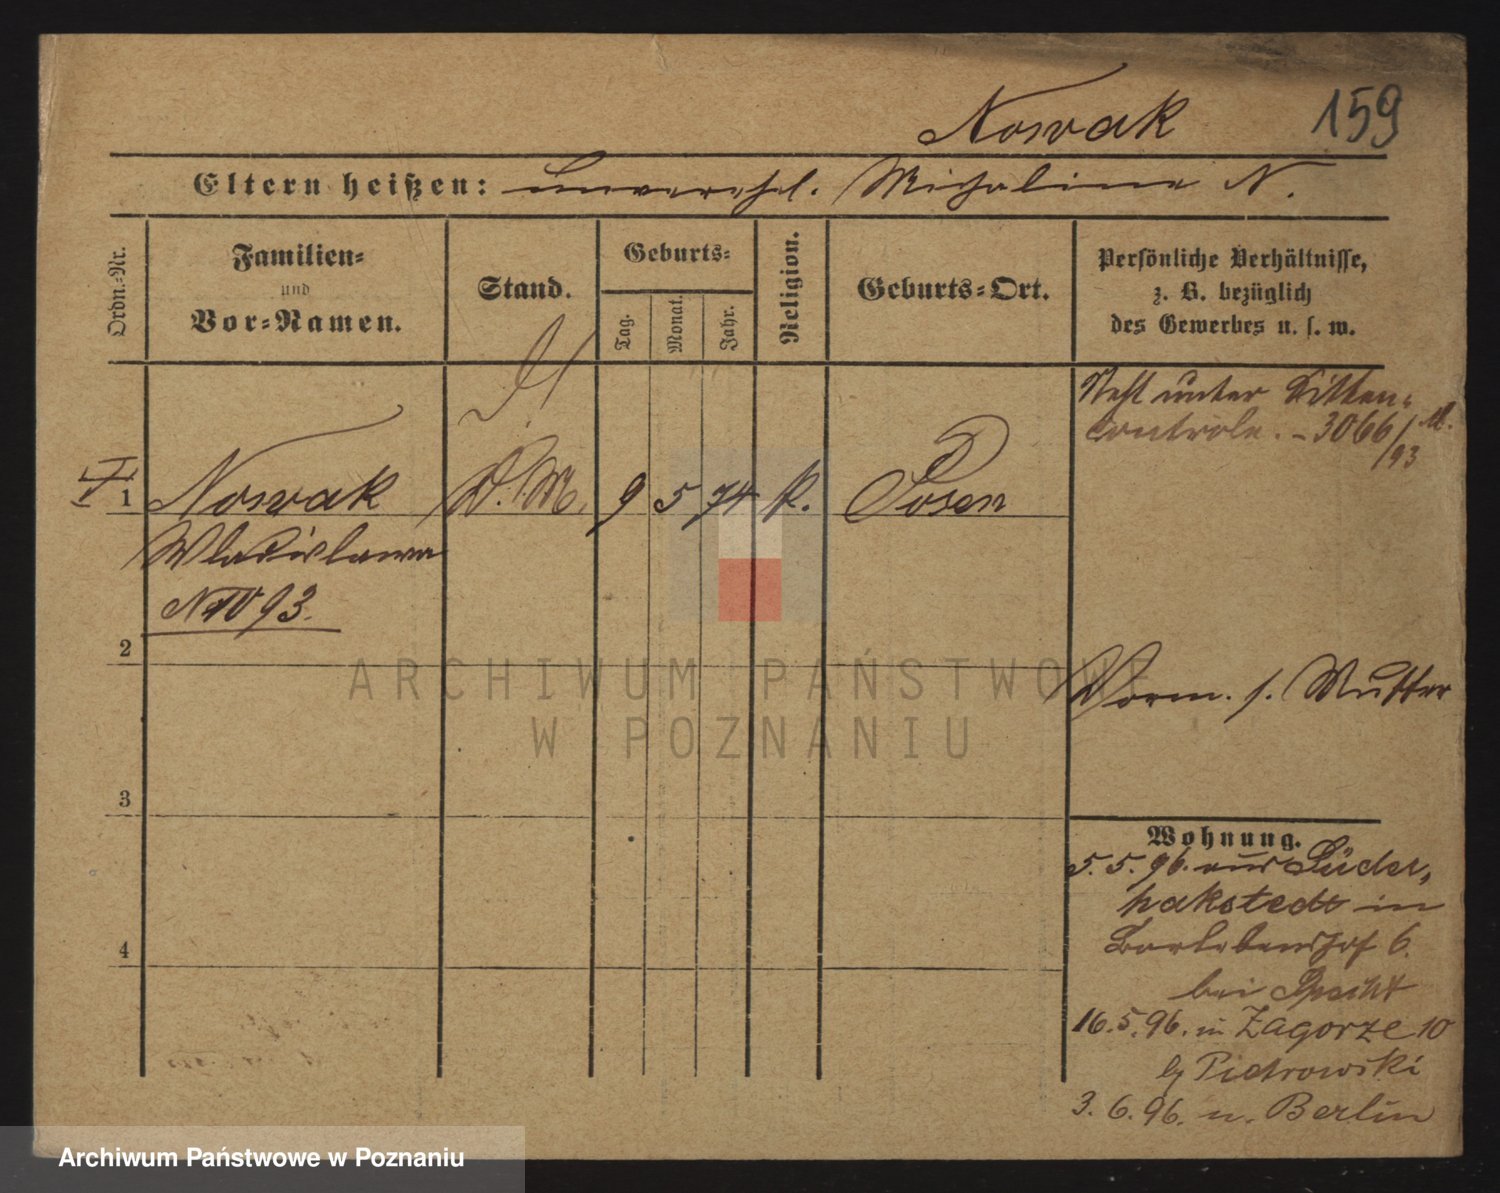 Nowak 159
Eltern heißen: unverehel. Michalina N.
Ordn.-Nr.
Familien-
und
Vor-Namen.
Stand.
Geburts-
Tag.
Monat.
Jahr.
Religion.
Geburts-Ort.
Persönliche Verhältnisse,
z. B. bezüglich
des Gewerbes u. s. w.
Steht unter Sitten-
controle. - 3066/
93
1 Nowak D. M. 9 5 74 K. Posen
Wladislawa
N IV 93.
2
Vorm. s. Mutter
ARCHIWUM PAŃSTWOWE
W POZNANIU
3
Wohnung.
5.5.96. aus
in
4
6.
bei Specht
16.5.96. in Zagorze 10
b/ Piotrowski
3.6.96. n. Berlin
Archiwum Państwowe w Poznaniu